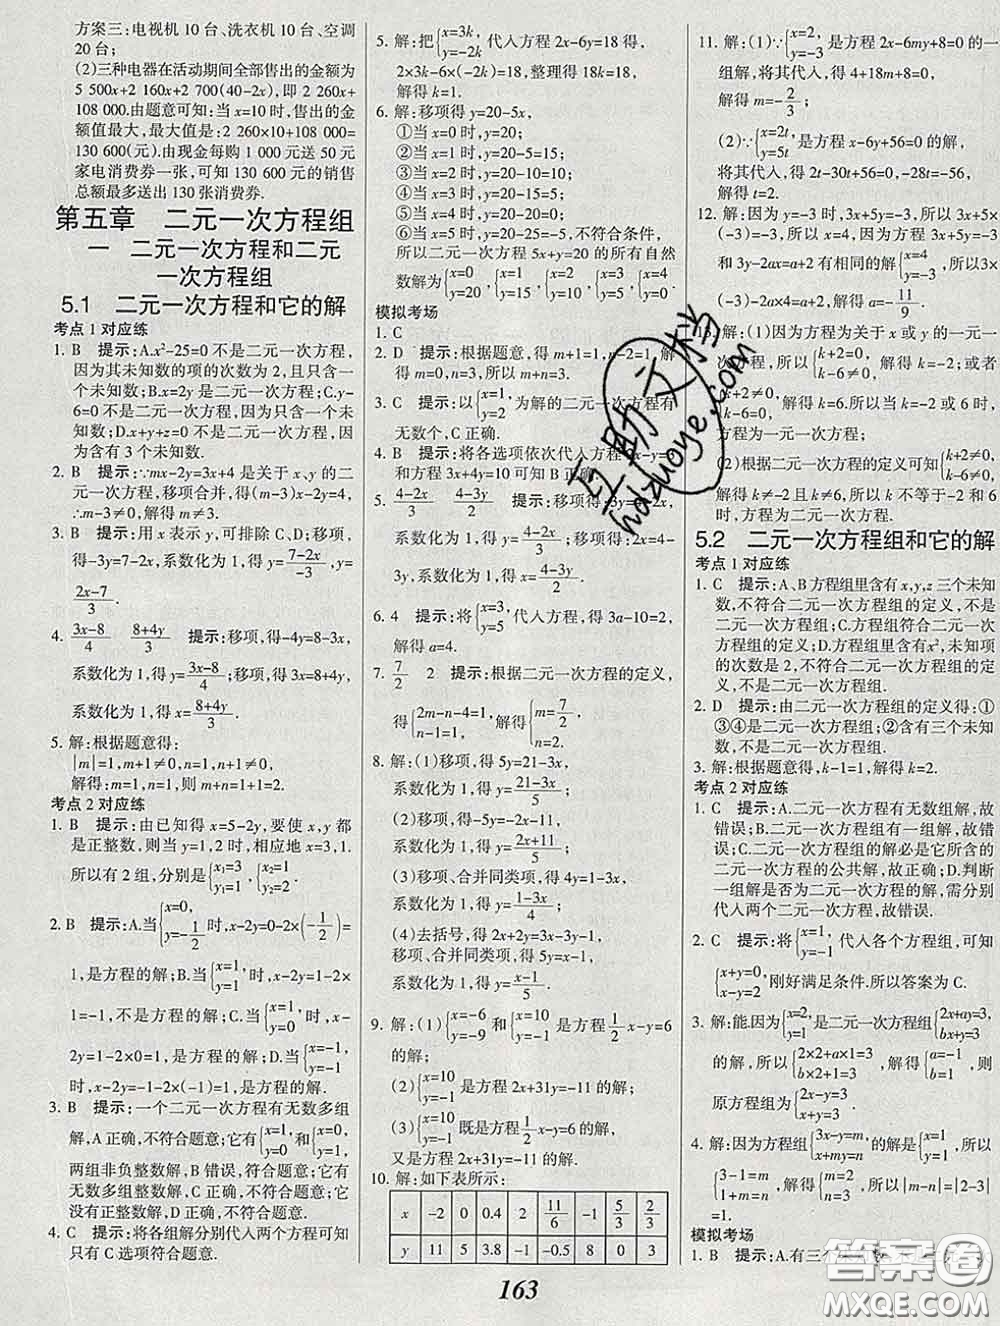 方案三:电视机10台、洗衣机10台、空调
20台;
(2)三种电器在活动期间全部售出的金额为
5 500x+2 160x+2 700(40-2x),即2 260x+
108 000.由题意可知:当x=10时,售出的金
额值最大,最大值为:2 260×10+108 000=
130 600(元).由现金每购1 000元送50元
家电消费券一张,可知130 600元的销售
总额最多送出130张消费券.
第五章 二元一次方程组
一 二元一次方程和二元
一次方程组
5.1 二元一次方程和它的解
考点1对应练
1. B 提示:A.x²-25=0不是二元一次方程,
因为其未知数的项的次数为2,且只含一个
未知数;B.x=2y是二元一次方程;C.y-
6=0不是二元一次方程,因为只含一个未
知数;D.x+y+z=0不是二元一次方程,因
为含有3个未知数.
2. B 提示:∵mx-2y=3x+4是关于x、y的二
元一次方程,移项合并,得(m-3)x-2y=4,
∴m-3≠0,解得m≠3.
3. B 提示:用x表示y,可排除C、D;移项,
得-3y=7-2x;系数化为1,得y=(7-2x)/(-3),即y=
(2x-7)/3.
4. (3x-8)/4 (8+4y)/3 提示:移项,得-4y=8-3x,
系数化为1,得y=(3x-8)/4;移项,得3x=8+4y,
系数化为1,得x=(8+4y)/3.
5. 解:根据题意得:
|m|=1,m+1≠0,n=1,n+1≠0,
解得:m=1,n=1,则m+n=1+1=2.
考点2对应练
1. B 提示:由已知得x=5-2y,要使x,y都
是正整数,则当y=1,2时,相应地x=3,1.
所以有2组,分别是{x₁=3, y₁=1 {x₂=1 y₂=2.
2. B 提示:A.当{x=0, y=-1/2 时,x-2y=0-2×(-1/2)=
1,是方程的解;B.当{x=1, y=1 时,x-2y=1-2×
1=-1,不是方程的解;C.当{x=1, y=0 时,x-
2y=1-2×0=1,是方程的解;D.当{x=-1 y=-1
时,x-2y=-1-2×(-1)=1,是方程的解.
3. B 提示:一个二元一次方程有无数多组
解,A正确,不符合题意;它有{x=1, y=0 和{x=0, y=1
两组非负整数解,B错误,符合题意;它有
无数多组整数解,C正确,不符合题意;它
没有正整数解,D正确,不符合题意.
4. C 提示:将各组解分别代入两个方程可知
只有C选项符合题意.
5. 解:把{x=3k, y=-2k 代入方程2x-6y=18得,
2×3k-6×(-2k)=18,整理得18k=18,
解得k=1.
6. 解:移项得y=20-5x,
①当x=0时,y=20;
②当x=1时,y=20-5=15;
③当x=2时,y=20-10=10;
④当x=3时,y=20-15=5;
⑤当x=4时,y=20-20=0;
⑥当x=5时,y=20-25=-5,不符合条件,
所以二元一次方程5x+y=20的所有自然
数解为{x=0 y=20, {x=1 y=15, {x=2 y=10, {x=3 y=5, {x=4 y=0.
模拟考场
1. C
2. D 提示:根据题意,得m+1=1,n-2=1,
解得m=0,n=3,所以m+n=3.
3. C 提示:以{x=1, y=2 为解的二元一次方程有
无数个,C正确.
4. B 提示:将各选项依次代入方程x-y=
和方程3x+4y=10可知B正确.
5. (4-2x)/3 (4-3y)/2 提示:移项得,3y=4-2x,
系数化为1,得y=(4-2x)/3;移项得:2x=4-
3y,系数化为1,得x=(4-3y)/2.
6. 4 提示:将{x=3, y=5 代入方程,得3a-10=2,
解得a=4.
7. 7/2 2 提示:根据二元一次方程的定义,
得{2m-n-4=1, n-1=1, 解得{m=7/2, n=2.
8. 解:(1)移项,得5y=21-3x,
系数化为1,得y=(21-3x)/5;
(2)移项,得-5y=-2x-11,
系数化为1,得y=(2x+11)/5;
(3)移项、合并同类项,得4y=1-3x,
系数化为1,得y=(1-3x)/4;
(4)去括号,得2x+2y=3x-3y-1,
移项、合并同类项,得5y=x-1,
系数化为1,得y=(x-1)/5.
9. 解:(1){x=-6 y=-9 和{x=10 y=-1 是方程1/2x-y=6
的解;
(2){x=10 y=-1 是方程2x+31y=-11的解;
(3){x=10 y=-1 既是方程1/2x-y=6的解,
又是方程2x+31y=-11的解.
10. 解:如下表所示:
x -2 0 0.4 2 11/6 -1 5/3 2/3
y 11 5 3.8 -1 -0.5 8 0 3
11. 解:(1)∵{x=2, y=-3 是方程2x-6my+8=0的一
组解,将其代入,得4+18m+8=0,
解得m=-2/3;
(2)∵{x=2t y=5t 是方程x-6y+56=0的解,
将其代入,得2t-30t+56=0,-28t=-56,
解得t=2.
12. 解:因为y=-3,3x+5y=-3,所以3x+5×
(-3)=-3,所以x=4,因为方程3x+5y=-3
和3x-2ax=a+2有相同的解{x=4, y=-3, 所以3×
(-3)-2a×4=a+2,解得a=-11/9.
13. 解:(1)因为方程为关于x或y的一元一
次方程,所以{k+2=0, k-6≠0, 解得k=-2;或者
{k+2≠0 k-6=0, 解得k=6.所以当k=-2或6时,
方程为一元一次方程;
(2)根据二元一次方程的定义可知{k+2≠0, k-6≠0,
解得k≠-2且k≠6,所以k不等于-2和6
时,方程为二元一次方程.
5.2 二元一次方程组和它的解
考点1对应练
1. C 提示:A、B方程组里含有x,y,z三个未知
数,不符合二元一次方程组的定义,不是
二元一次方程组;C.方程组符合二元一次
方程组的定义;D.方程组里含有x²,未知
项的次数是2,不符合二元一次方程组的定
义,不是二元一次方程组.
2. D 提示:由二元一次方程组的定义得:①
③④是二元一次方程组;②含有三个未知
数,不是二元一次方程组.
3. 解:根据题意,得k-1=1,解得k=2.
考点2对应练
1. C 提示:A.二元一次方程有无数组解,故
错误;B.二元一次方程组有一组解,故错
误;C.二元一次方程组的解必是它所含的
二元一次方程的公共解,故正确;D.判断
一组解是否为二元一次方程的解,需分别
代入两个二元一次方程,故错误.
2. C 提示:将{x=1, y=-1 代入各个方程组,可知
{x+y=0, x-y=2 刚好满足条件.所以答案为C.
3. 解:能.因为{x=2, y=1 是二元一次方程组{2x+ay=3, bx+y=3
的解,所以{2×2+a×1=3 b×2+1=3, 解得{a=-1, b=1. 则
原方程组为{2x-y=3 x+y=3.
4. 解:因为方程组{3x-y=m, x+my=n 的解是{x=1, y=-1, 所以
{3-1=m 1+m=n, 解得{m=2, n=3, 所以|m-n|=|2-3|
=1.
模拟考场
1. B 提示:A.有三个
163
互助文档
hdzuoye.com
答案圈
MXQE.COM